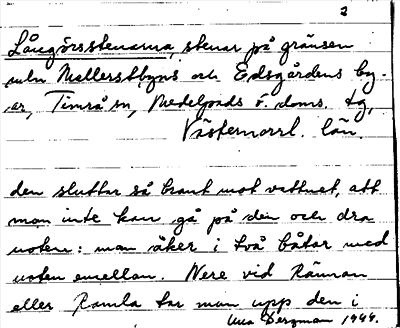 2
Långörsstenarna, stenar på gränsen
mln Mellerstbyns och Edsgårdens by-
ar, Timrå sn, Medelpads ö. doms. tg,
Västernorrl. län.
den sluttar så brant mot vattnet, att
man inte kan gå på den och dra
noten: man åker i två båtar med
noten emellan. Nere vid Rännan
eller Ramla tar man upp den i
Bergman 1944.